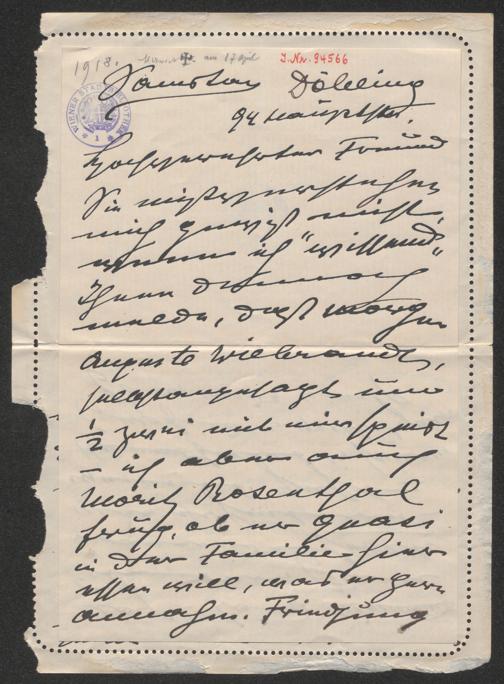 1918.
am 17 April
J.Nr. 94566
WIENER STADTBIBLIOTHEK
Samstag Döbling
94 Hauptstr.
Hochverehrter Freund
Sie mißzuverstehen
mich gewiß nicht,
wenn ich "wissend"
Ihnen dennoch
melde, daß morgen
Auguste Wilbrandt,
selbstangesagt um
½ zwei mit mir speist
– ich aber auch
Moritz Rosenthal
frug, ob er quasi
in der Familie hier
essen will, was er gern
annahm. Friedjung